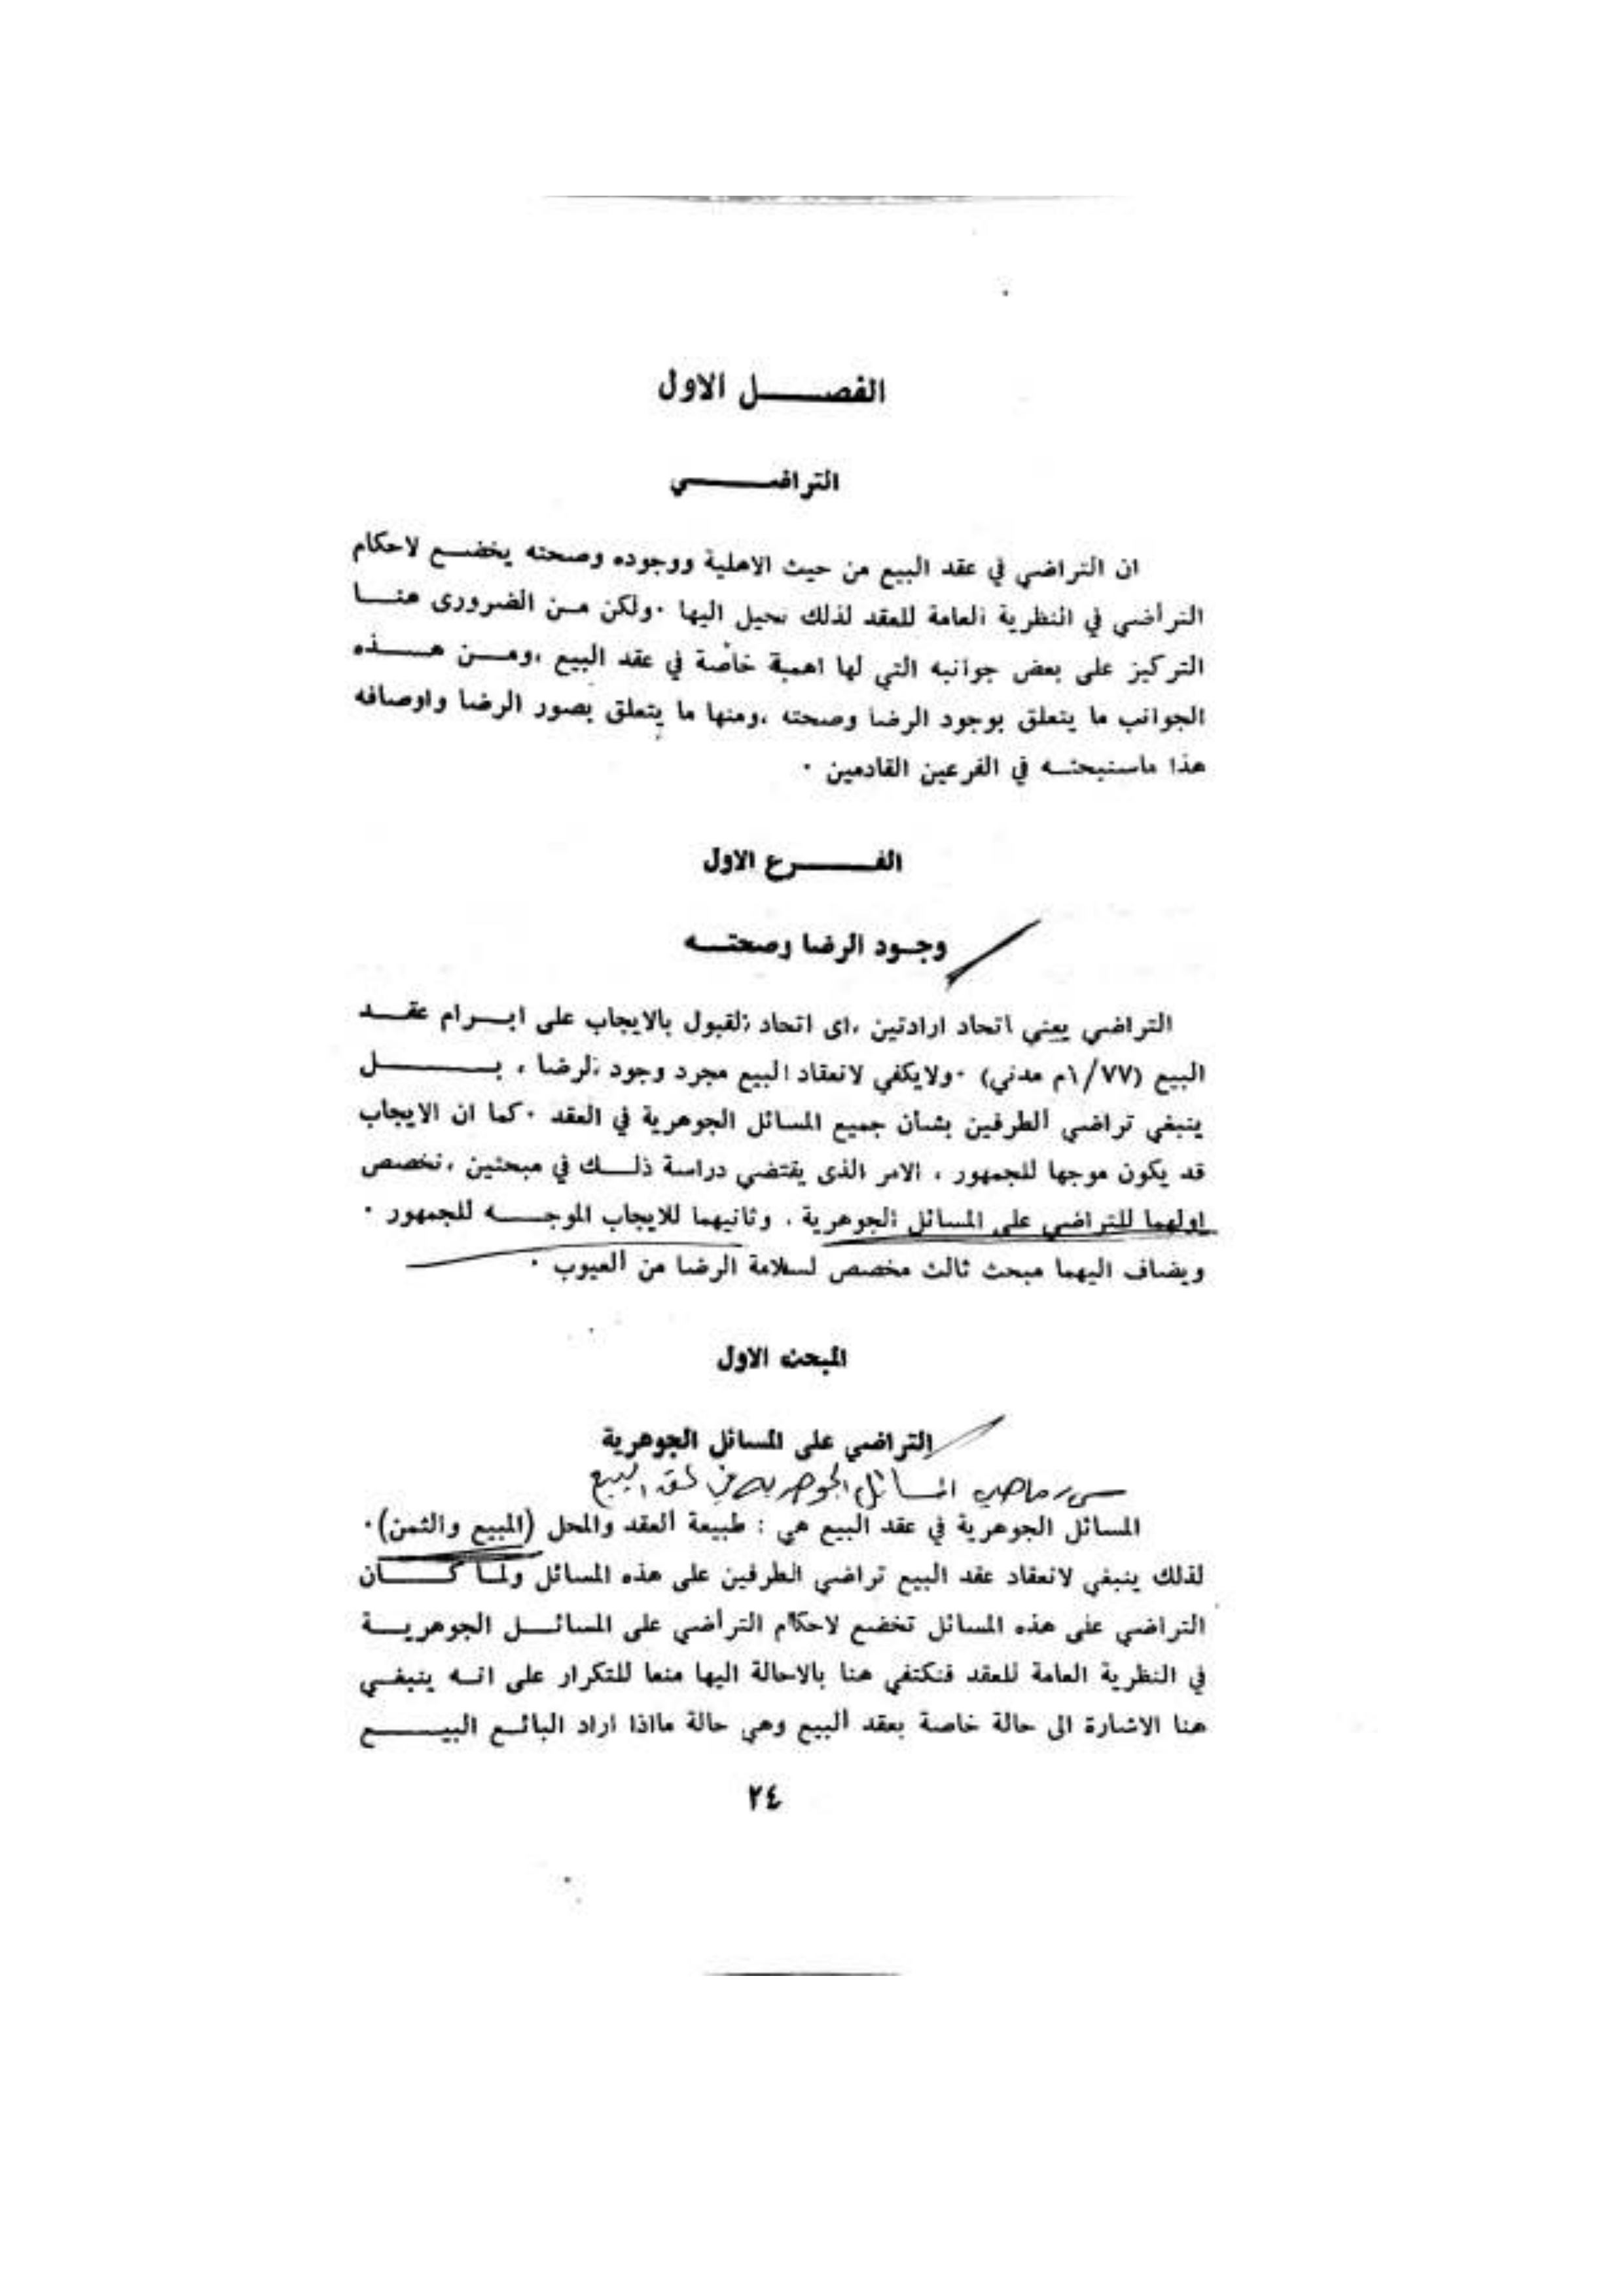 الفصل الاول
التراضي
ان التراضي في عقد البيع من حيث الاهلية ووجوده وصحته يخضع لاحكام
التراضي في النظرية العامة للعقد لذلك نحيل اليها ٠ولكن من الضرورى هنا
التركيز على بعض جوانبه التي لها اهمية خاصة في عقد البيع ،ومن هذه
الجوانب ما يتعلق بوجود الرضا وصحته ،ومنها ما يتعلق بصور الرضا واوصافه
هذا ماسنبحثه في الفرعين القادمين ٠
الفرع الاول
وجود الرضا وصحته
التراضي يعني اتحاد ارادتين ،اى اتحاد القبول بالايجاب على ابرام عقد
البيع (١/٧٧م مدني) ٠ولايكفي لانعقاد البيع مجرد وجود الرضا ، بل
ينبغي تراضي الطرفين بشان جميع المسائل الجوهرية في العقد ٠كما ان الايجاب
قد يكون موجها للجمهور ، الامر الذى يقتضي دراسة ذلك في مبحثين ،نخصص
اولهما للتراضي على المسائل الجوهرية ، وثانيهما للايجاب الموجه للجمهور ٠
ويضاف اليهما مبحث ثالث مخصص لسلامة الرضا من العيوب ٠
المبحث الاول
التراضي على المسائل الجوهرية
س/ ماهي المسائل الجوهرية في عقد البيع
المسائل الجوهرية في عقد البيع هي : طبيعة العقد والمحل (المبيع والثمن)٠
لذلك ينبغي لانعقاد عقد البيع تراضي الطرفين على هذه المسائل ولما كان
التراضي على هذه المسائل تخضع لاحكام التراضي على المسائل الجوهرية
في النظرية العامة للعقد فنكتفي هنا بالاحالة اليها منعا للتكرار على انه ينبغي
هنا الاشارة الى حالة خاصة بعقد البيع وهي حالة مااذا اراد البائع البيع
٢٤